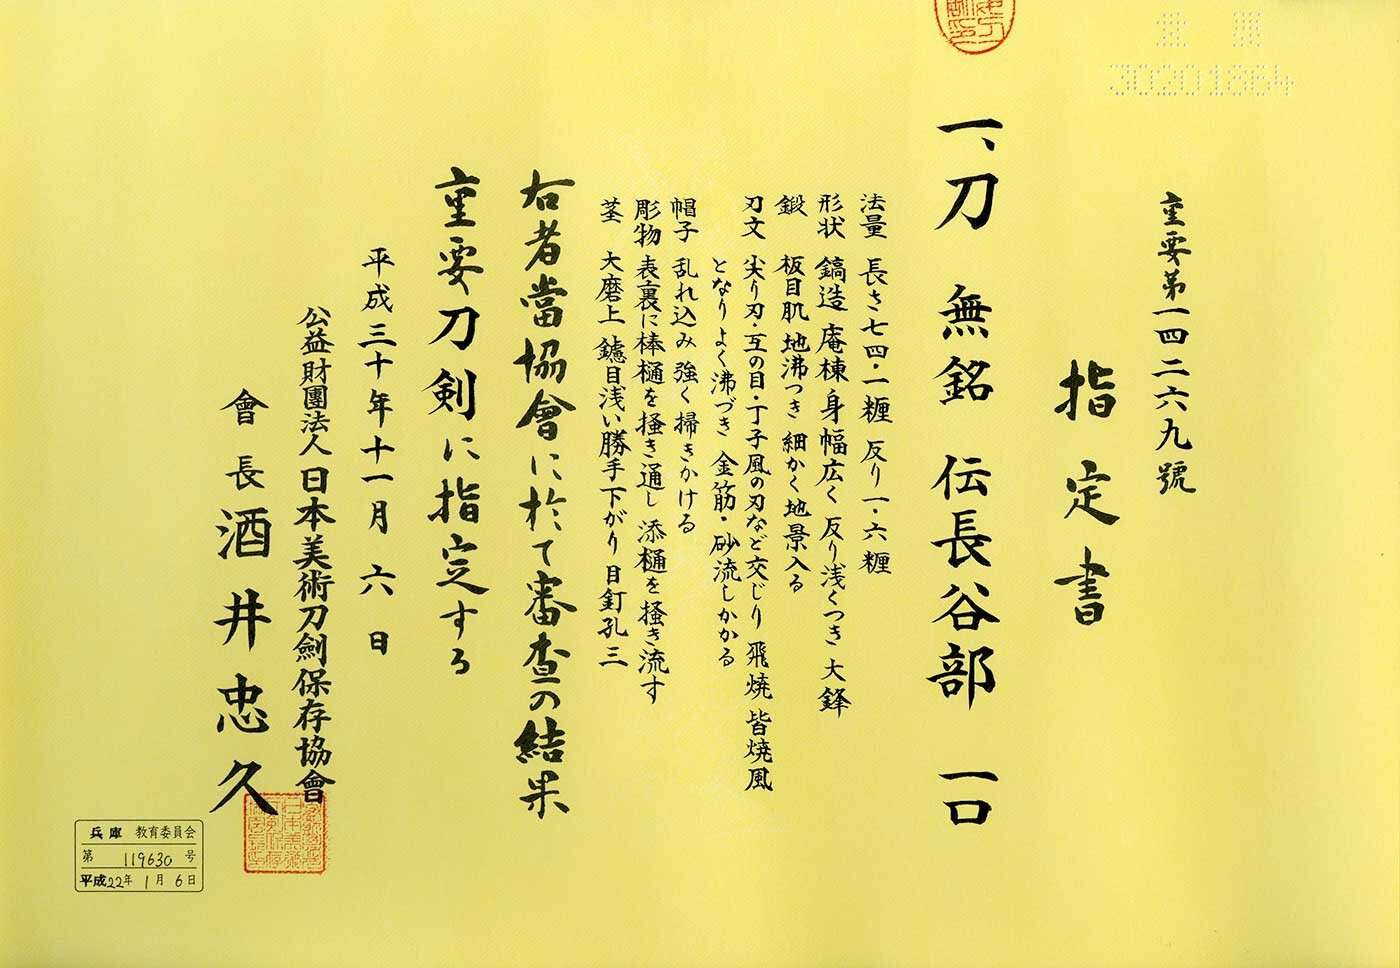 重要第一四二六九號
指定書
一、刀 無銘 伝長谷部 一口
法量 長さ七四・一糎 反り一・六糎
形状 鎬造 庵棟 身幅広く 反り浅くつき 大鋒
鍛 板目肌 地沸つき 細かく地景入る
刃文 尖り刃・互の目・丁子風の刃など交じり 飛焼 皆焼風
となりよく沸づき 金筋・砂流しかかる
帽子 乱れ込み 強く掃きかける
彫物 表裏に棒樋を掻き通し 添樋を掻き流す
茎 大磨上 鑢目浅い勝手下がり 目釘孔三
右者當協會に於て審査の結果
重要刀剣に指定する
平成三十年十一月六日
公益財團法人日本美術刀劍保存協會
會長 酒井忠久
兵庫 教育委員会
第 119630 号
平成22年1月6日
30201864